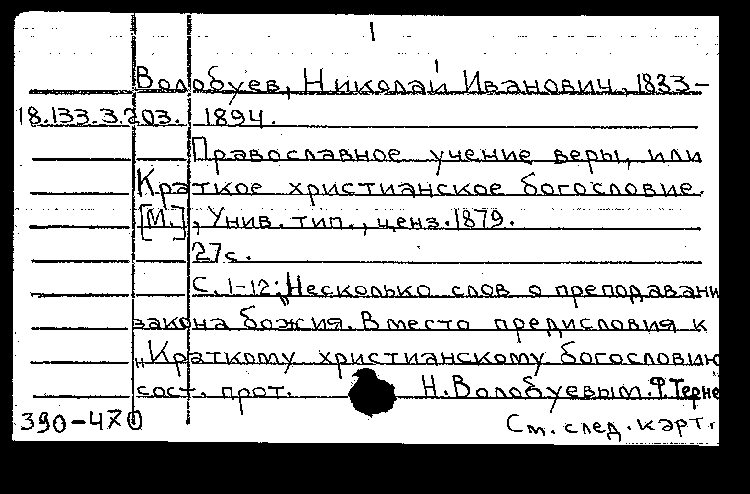 1
Волобуев, Николай Иванович, 1833-
18.133.3.203. 1894.
Православное учение веры, или
Краткое христианское богословие.
[М.], Унив. тип., ценз. 1879.
27с.
С. 1-12: „Несколько слов о преподавани
закона божия. Вместо предисловия к
„Краткому христианскому богословию
сост. прот. Н. Волобуевым. Ф. Терне
390-470
См. след. карт.